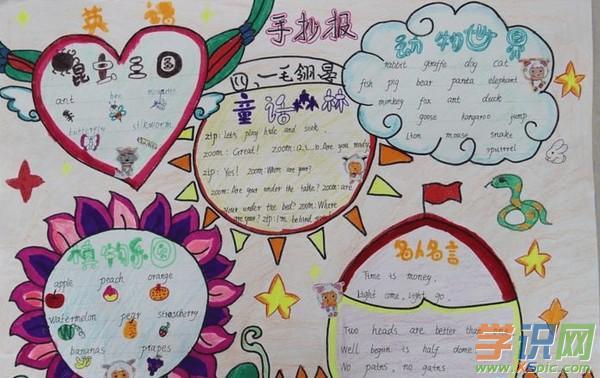 英语
手抄报
昆虫王国
ant
bee
butterfly
silkworm
童话丛林
zip: Let's play hide and seek.
zoom: Great! zoom: 1.2.3... Are you ready
zip: Yes! zoom: Where are you?
zoom: Are you under the table? zoom: are
your under the bed? zoom: Where
are you? zip: I'm behind
动物世界
rabbit giraffe dog cat
fish pig bear panda elephant
monkey fox ant duck
goose kangaroo jump
Lion mouse snake
squirrel
植物乐园
apple peach orange
watermelon pear strawberry
bananas grapes
名人名言
Time is money.
Light come, light go.
Two heads are better than
Well begun is half done
No pains, no gains
学识网
www.xspic.com